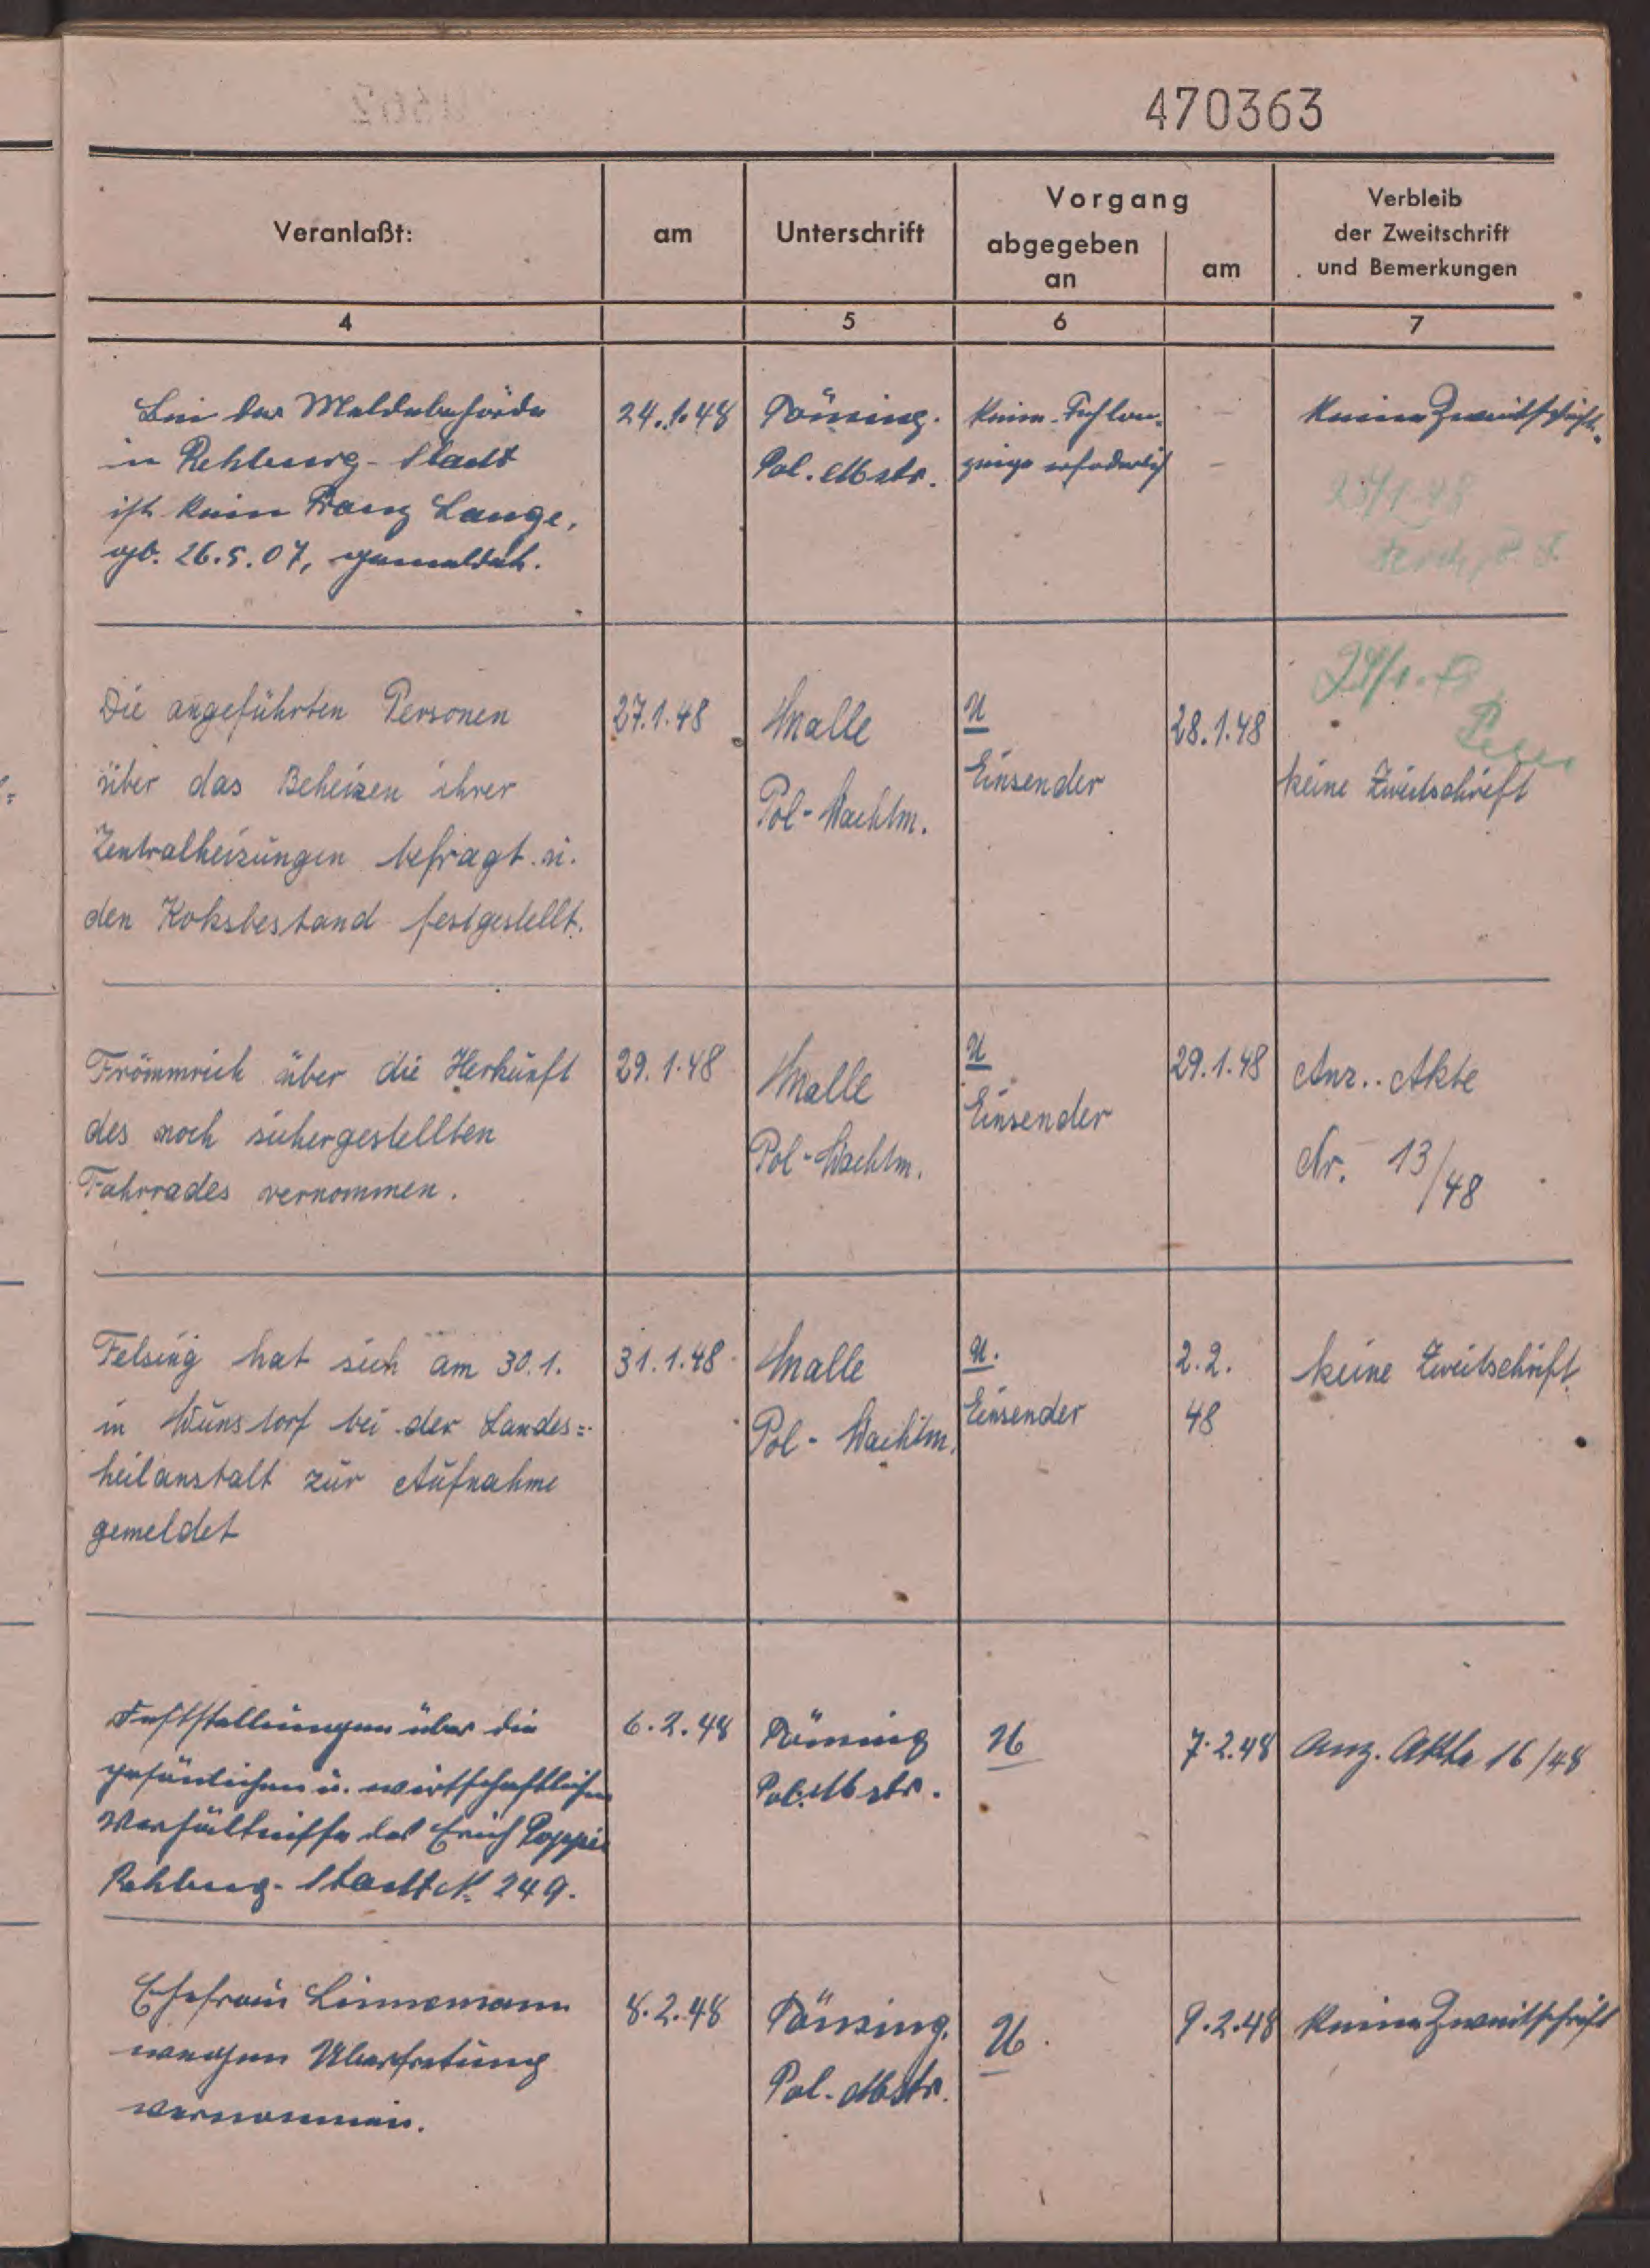 470363
Veranlaßt:
am
Unterschrift
Vorgang
abgegeben
an
am
Verbleib
der Zweitschrift
und Bemerkungen
4
5
6
7
Bei der Meldebehörde
in Rehburg-Stadt
ist kein Franz Lange,
gb. 26.5.07, gemeldet.
24.1.48
Pol. Mstr.
keine
erforderlich
keine Zweitschrift.
Die angeführten Personen
über das Beheizen ihrer
Zentralheizungen befragt u.
den Koksbestand festgestellt.
27.1.48
Malle
Pol-Wachtm.
U
Einsender
28.1.48
keine Zweitschrift
Frömmrich über die Herkunft
des noch sichergestellten
Fahrrades vernommen.
29.1.48
Malle
Pol-Wachtm.
U
Einsender
29.1.48
Anz.. Akte
Nr. 13/48
Felsing hat sich am 30.1.
in Wunstorf bei der Landes=
heilanstalt zur Aufnahme
gemeldet
31.1.48
Malle
Pol-Wachtm.
U.
Einsender
2.2.
48
keine Zweitschrift
Feststellungen über die
persönlichen u. wirtschaftlichen
Verhältnisse des Erich
Rehburg-Stadt N. 249.
6.2.48
Pol. Mstr.
U
7.2.48
Anz. Akte 16/48
Ehefrau Linnemann
wegen Übertretung
vernommen.
8.2.48
Pol. Mstr.
U.
9.2.48
keine Zweitschrift